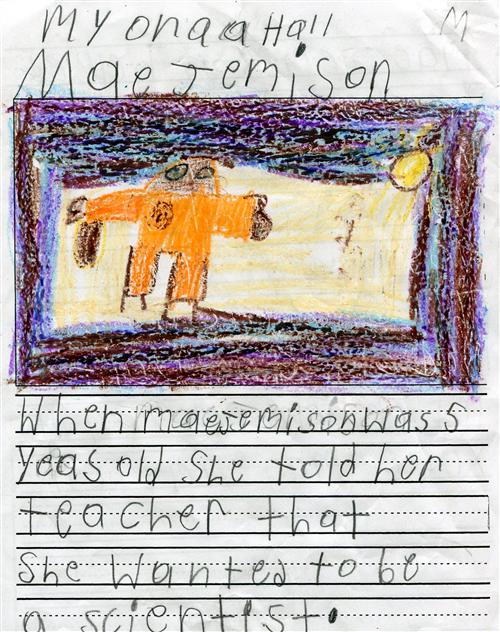 Myonaa Hall
M
Mae Jemison
When maeJemison was 5
yeas old she told her
teacher that
She wanted to be
a scientist.